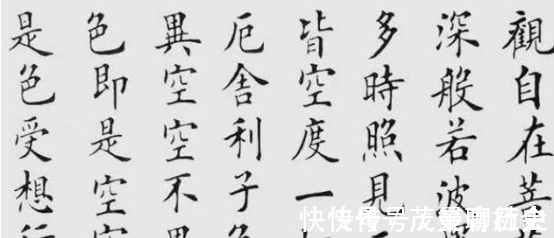 觀自在菩
深般若波
多時照見
皆空度一
厄舍利子色
異空空不異
色即是空空
是色受想行